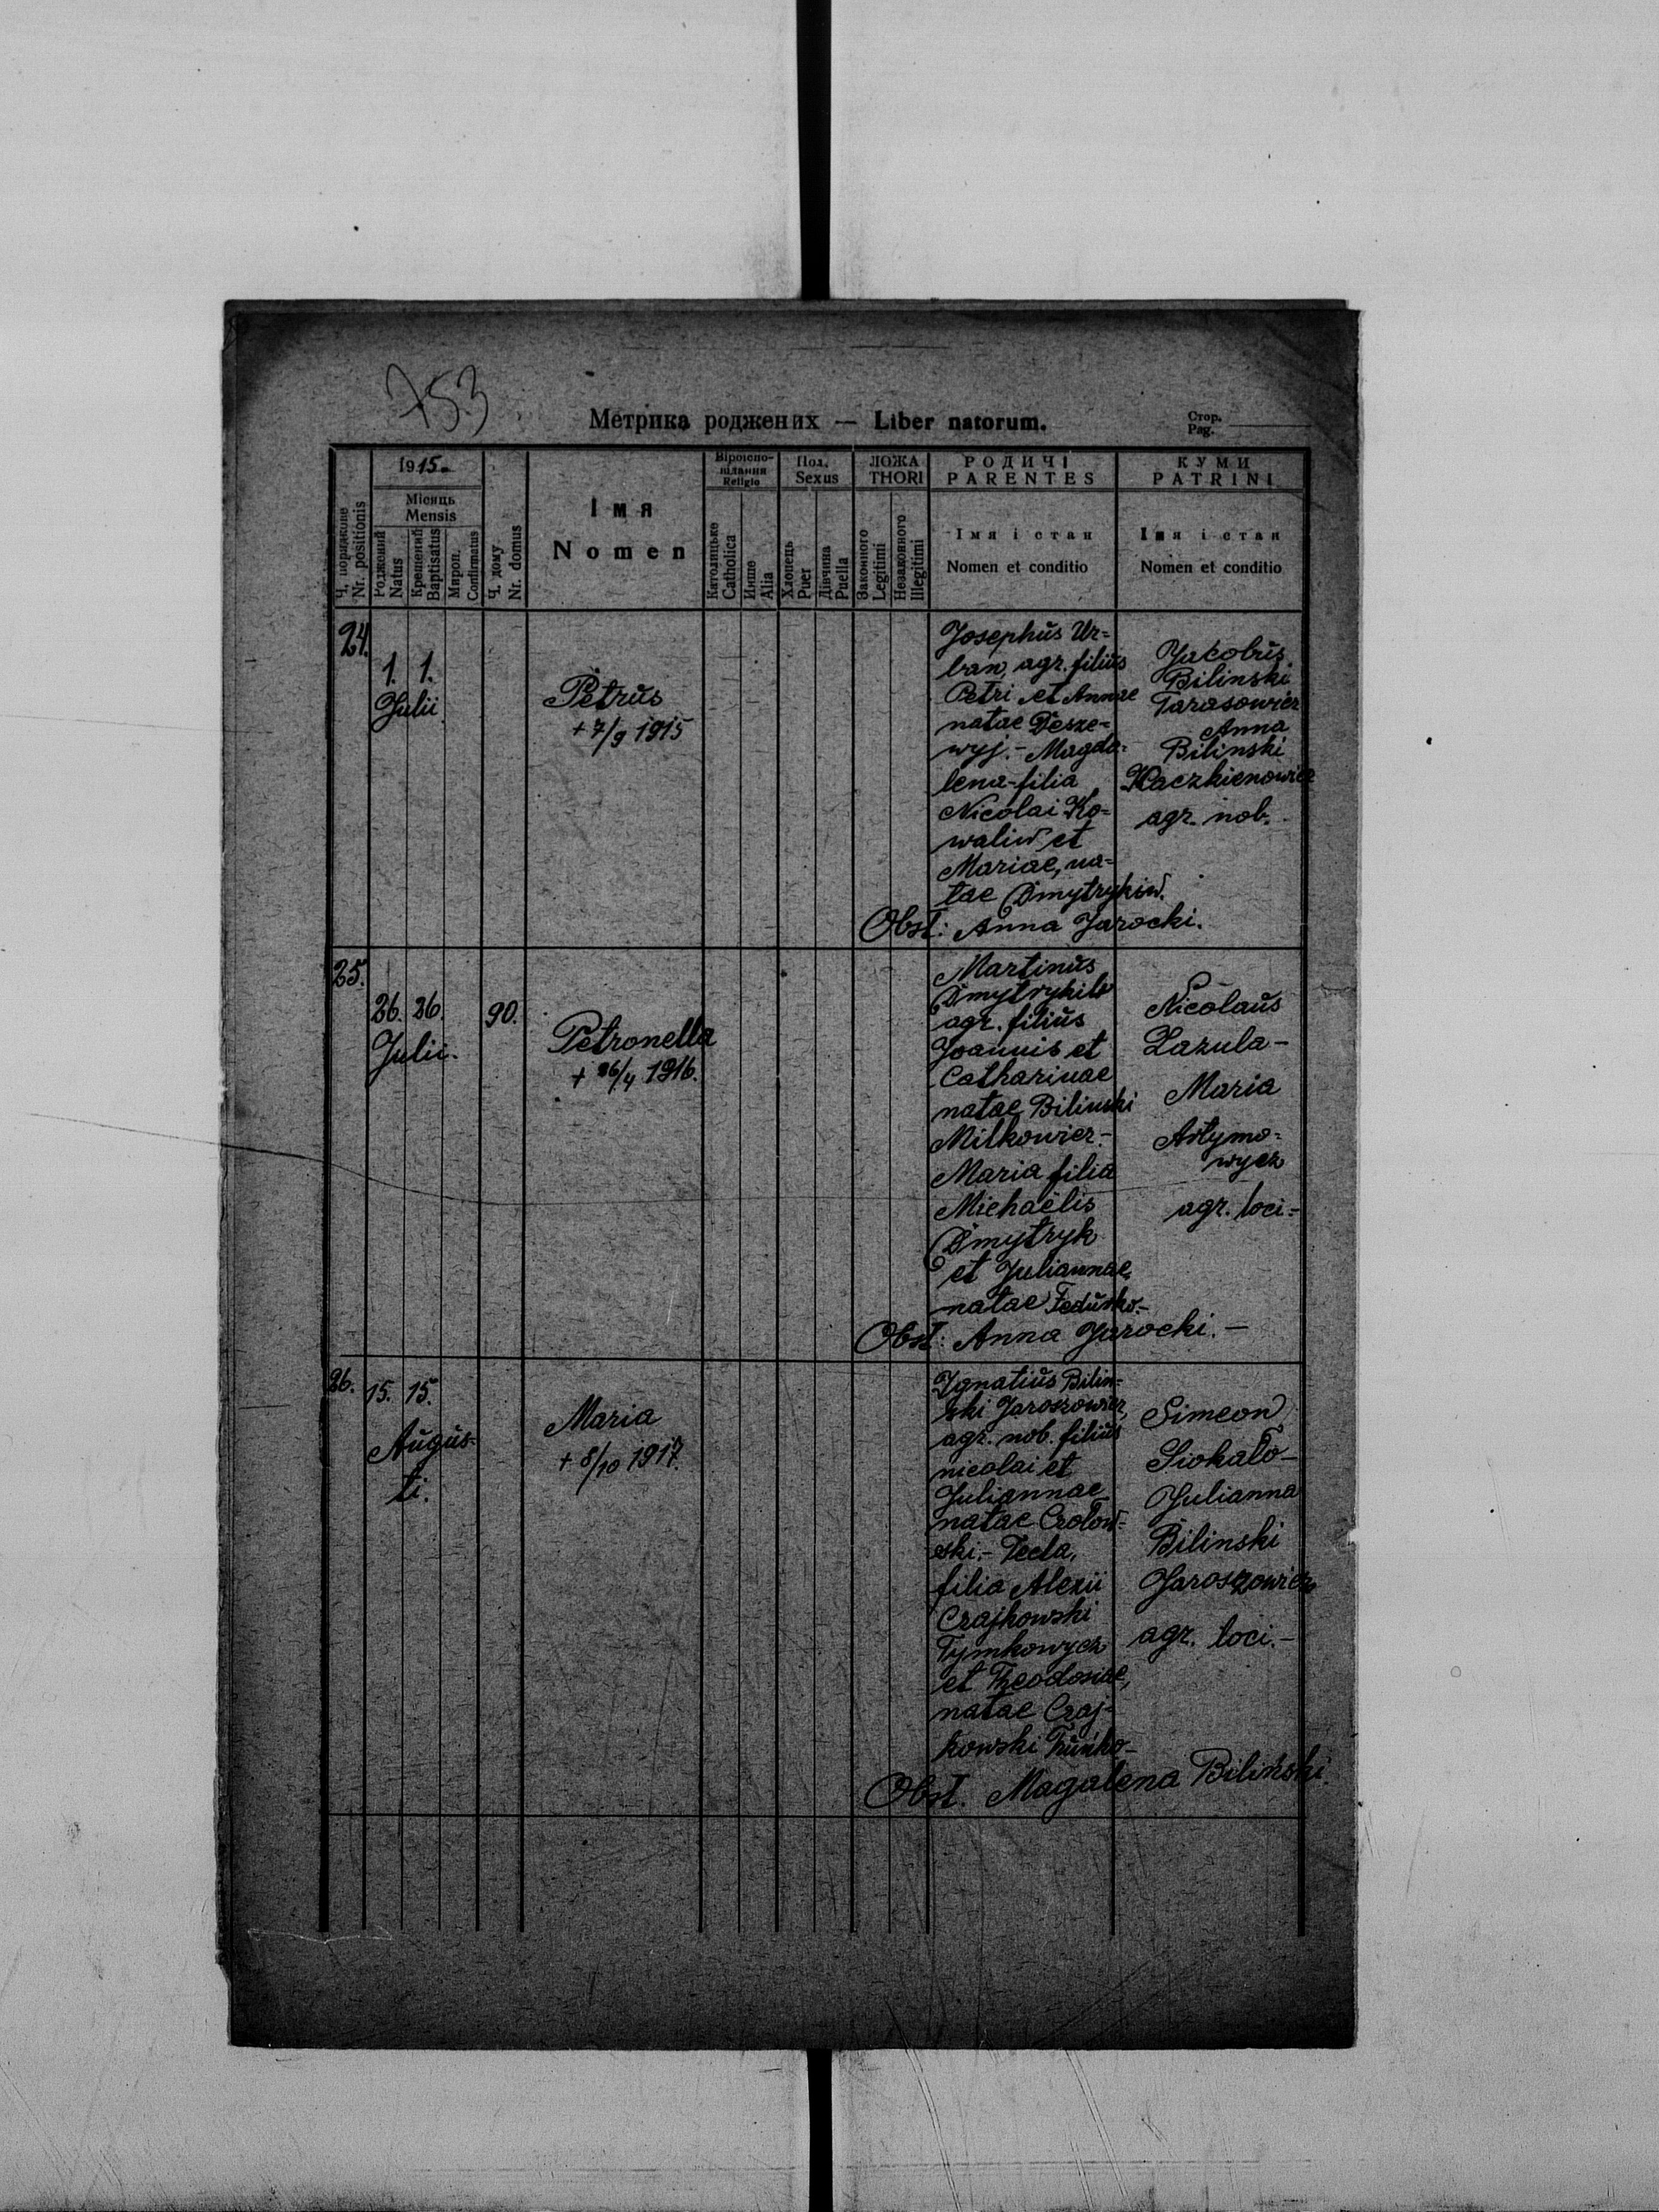 753
Метрика роджених — Liber natorum.
Стор.
Pag.
Ч. порядкове
Nr. positionis
1915.
Місяць
Mensis
Роджений
Natus
Крещений
Baptisatus
Миров.
Confirmatus
Ч. дому
Nr. domus
Імя
Nomen
Віроіспо-
відання
Religio
Католицьке
Catholica
Инше
Alia
Пол.
Sexus
Хлопець
Puer
Дівчина
Puella
ЛОЖА
THORI
Законного
Legitimi
Незаконного
Illegitimi
РОДИЧІ
PARENTES
Імя і стан
Nomen et conditio
КУМИ
PATRINI
Імя і стан
Nomen et conditio
24.
1. 1.
Julii
Petrus
+ 7/9 1915
Josephus Ur=
ban, agr. filius
Petri et Annae
natae Desze=
wyj. - Magda=
lena - filia
Nicolai Ko=
waliw et
Mariae, na=
tae Dmytrykiw.
Jacobus
Bilinski
Tarasowicz
Anna
Bilinski
Kaczkienowicz
agr. nob.
Obst: Anna Jarocki.
25.
26. 26.
Julii.
90.
Petronella
+ 26/4 1916.
Martinus
Dmytrykiw
agr. filius
Joannis et
Catharinae
natae Bilinski
Milkowicz -
Maria filia
Michaëlis
Dmytryk
et Juliannae,
natae Fedunko. -
Nicolaus
Lazula -
Maria
Artymo=
wycz
agr. loci =
Obst: Anna Jarocki. -
26.
15. 15.
Augus=
ti.
Maria
+ 8/10 1917.
Ignatius Bilin=
ski Jaroszowicz,
agr. nob. filius
nicolai et
Juliannae
natae Czołow=
ski. - Tecla,
filia Alexii
Czajkowski
Tymkowycz
et Theodosiae,
natae Czaj-
kowski Fuńko -
Simeon
Siokało -
Julianna
Bilinski
Jaroszowicz
agr. loci. -
Obst. Magalena Biliński.